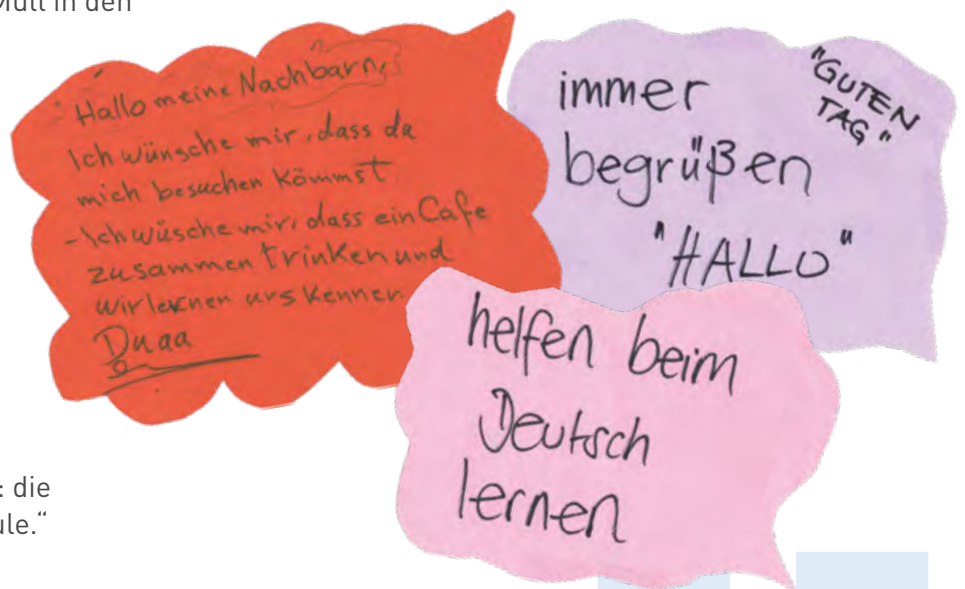 Müll in den
Hallo meine Nachbarn,
Ich wünsche mir, dass da
mich besuchen kömmst.
- Ich wüsche mir, dass ein Cafe
zusammen trinken und
wir lernen uns kennen
Duaa
immer
begrüßen
"HALLO"
"GUTEN
TAG"
helfen beim
Deutsch
lernen
: die
ule.“